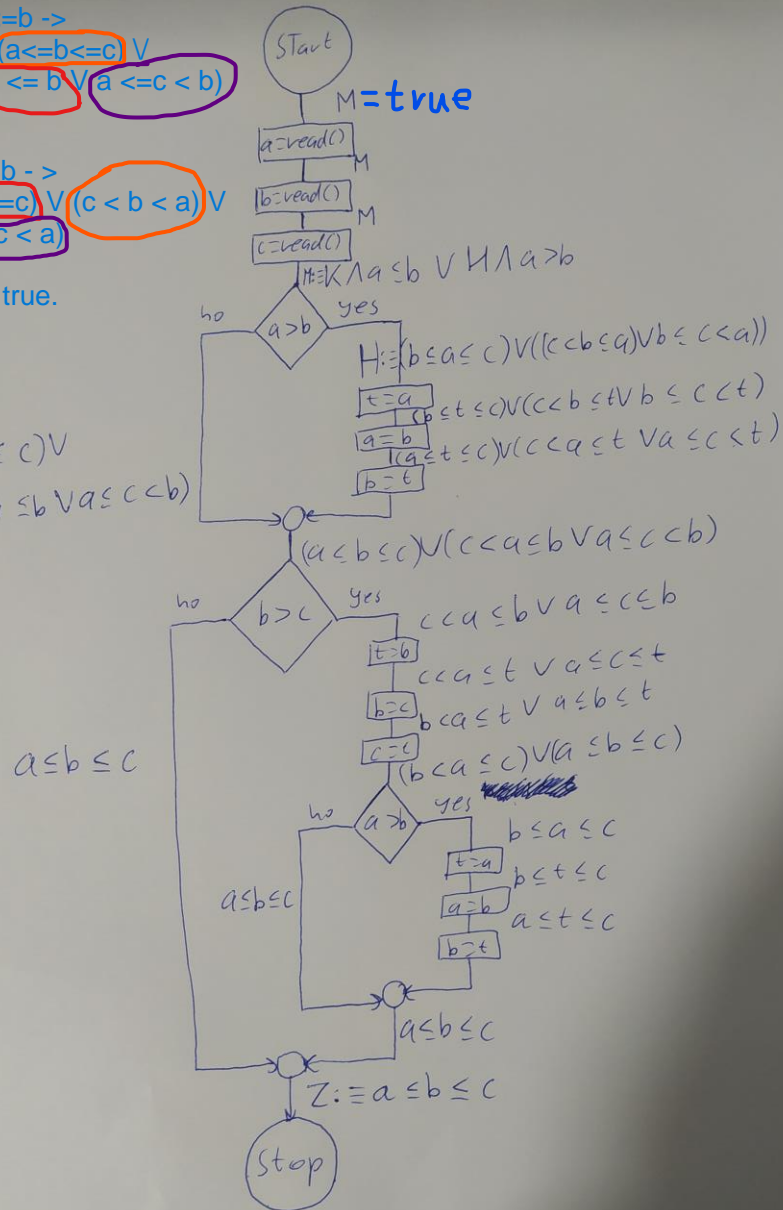 =b ->
(a<=b<=c) V
<= b V a <=c < b)
b ->
=c) V (c < b < a) V
c < a)
true.
START
M=true
a=read()
M
b=read()
M
c=read()
M:≡K∧a≤b ∨ H∧a>b
no
a>b
yes
H:≡(b≤a≤c)∨((c<b≤a)∨b≤c<a))
t=a
(b≤t≤c)∨(c<b≤t∨b≤c<t)
a=b
(a≤t≤c)∨(c<a≤t∨a≤c<t)
b=t
≤c)∨
≤b∨a≤c<b)
(a≤b≤c)∨(c<a≤b∨a≤c<b)
no
b>c
yes
c<a≤b∨a≤c≤b
t=b
c<a≤t∨a≤c≤t
b=c
b<a≤t∨a≤b≤t
a≤b≤c
(b<a≤c)∨(a≤b≤c)
no
a>b
yes
b≤a≤c
t=a
b≤t≤c
a≤b≤c
a=b
a≤t≤c
b=t
a≤b≤c
Z:≡a≤b≤c
Stop